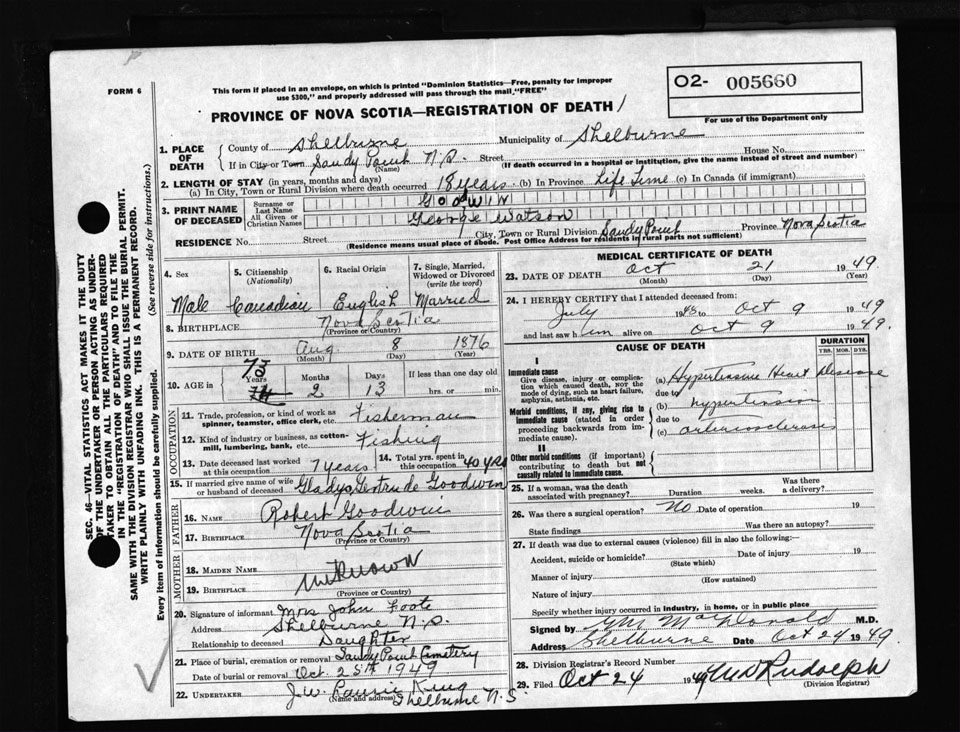 FORM 6
This form if placed in an envelope, on which is printed "Dominion Statistics—Free, penalty for improper
use $300," and properly addressed will pass through the mail "FREE"
O2- 005660
For use of the Department only
PROVINCE OF NOVA SCOTIA—REGISTRATION OF DEATH
SEC. 46—VITAL STATISTICS ACT MAKES IT THE DUTY
OF THE UNDERTAKER OR PERSON ACTING AS UNDER-
TAKER TO OBTAIN ALL THE PARTICULARS REQUIRED
IN THE "REGISTRATION OF DEATH" AND TO FILE THE
SAME WITH THE DIVISION REGISTRAR WHO SHALL ISSUE THE BURIAL PERMIT.
WRITE PLAINLY WITH UNFADING INK. THIS IS A PERMANENT RECORD.
Every item of information should be carefully supplied. (See reverse side for instructions.)
1. PLACE OF DEATH
County of Shelburne Municipality of Shelburne
If in City or Town Sandy Point N.S. Street House No.
(Name) (If death occurred in a hospital or institution, give the name instead of street and number)
2. LENGTH OF STAY (in years, months and days)
(a) In City, Town or Rural Division where death occurred 18 years (b) In Province Life Time (c) In Canada (if immigrant)
3. PRINT NAME OF DECEASED
Surname or Last Name Goodwin
All Given or Christian Names George Watson
RESIDENCE No. Street City, Town or Rural Division Sandy Point Province Nova Scotia
(Residence means usual place of abode. Post Office Address for residents in rural parts not sufficient)
4. Sex
5. Citizenship (Nationality)
6. Racial Origin
7. Single, Married, Widowed or Divorced (write the word)
Male Canadian English Married
8. BIRTHPLACE Nova Scotia
(Province or Country)
9. DATE OF BIRTH Aug. 8 1876
(Month) (Day) (Year)
10. AGE in 73 Years Months 2 Days 13 If less than one day old
hrs. or min.
OCCUPATION
11. Trade, profession, or kind of work as
spinner, teamster, office clerk, etc. Fisherman
12. Kind of industry or business, as cotton-
mill, lumbering, bank, etc. Fishing
13. Date deceased last worked
at this occupation 7 years
14. Total yrs. spent in
this occupation 40 yrs
15. If married give name of wife
or husband of deceased Gladys Gertrude Goodwin
FATHER
16. NAME Robert Goodwin
17. BIRTHPLACE Nova Scotia
(Province or Country)
MOTHER
18. MAIDEN NAME
19. BIRTHPLACE unknown
(Province or Country)
20. Signature of informant Mrs John Foote
Address Shelburne N.S.
Relationship to deceased Daughter
21. Place of burial, cremation or removal Sandy Point Cemetery
Date of burial or removal Oct. 25th 1949
22. UNDERTAKER J.W. Laurie King
(Name and address) Shelburne N.S.
MEDICAL CERTIFICATE OF DEATH
23. DATE OF DEATH Oct 21 1949
(Month) (Day) (Year)
24. I HEREBY CERTIFY that I attended deceased from:
July to Oct 9 1949
and last saw him alive on Oct 9 1949.
CAUSE OF DEATH
DURATION
YRS. MOS. DYS.
I
Immediate cause
Give disease, injury or complica-
tion which caused death, NOT the
mode of dying, such as heart failure,
asphyxia, asthenia, etc.
(a) Hypertensive Heart Disease
due to
Morbid conditions, if any, giving rise to
immediate cause (stated in order
proceeding backwards from im-
mediate cause).
(b) hypertension
due to
(c) arteriosclerosis
II
Other morbid conditions (if important)
contributing to death but not
causally related to immediate cause.
25. If a woman, was the death
associated with pregnancy? Duration weeks. Was there
a delivery?
26. Was there a surgical operation? No Date of operation 19
State findings Was there an autopsy?
27. If death was due to external causes (violence) fill in also the following:—
Accident, suicide or homicide? Date of injury 19
(State which)
Manner of injury
(How sustained)
Nature of injury
Specify whether injury occurred in industry, in home, or in public place
Signed by G.M. MacDonald M.D.
Address Shelburne Date Oct 24 1949
28. Division Registrar's Record Number
29. Filed Oct 24 1949 Rudolph
(Division Registrar)